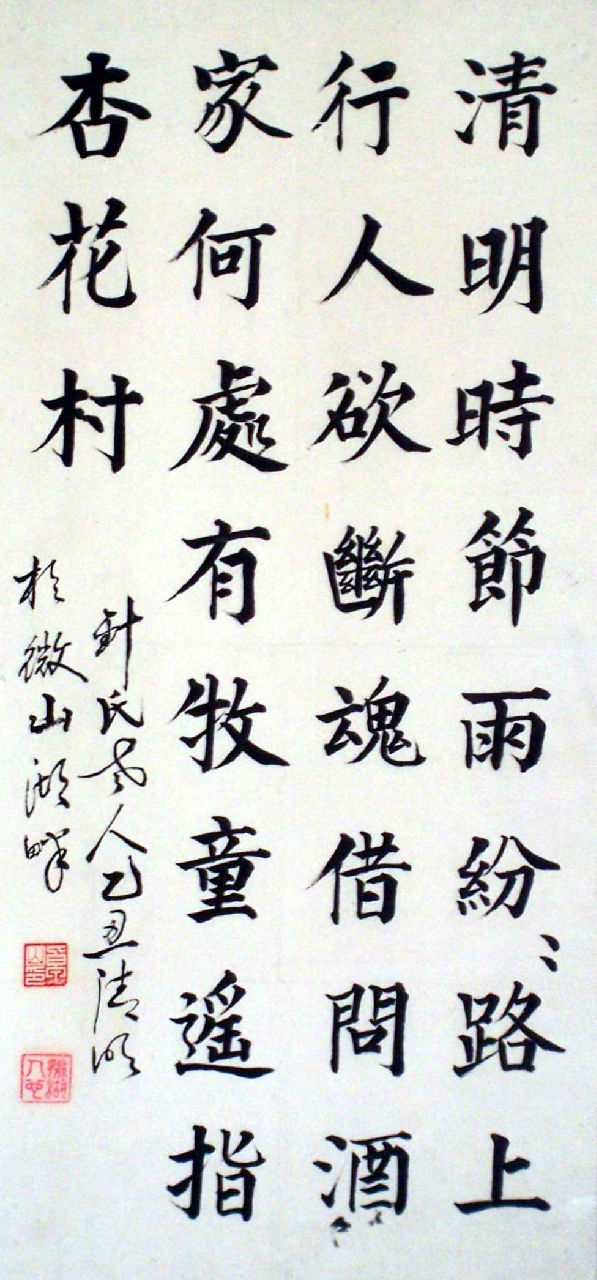 清明時節雨紛〻路上
行人欲斷魂借問酒
家何處有牧童遥指
杏花村
針氏老人乙丑清明
於微山湖畔